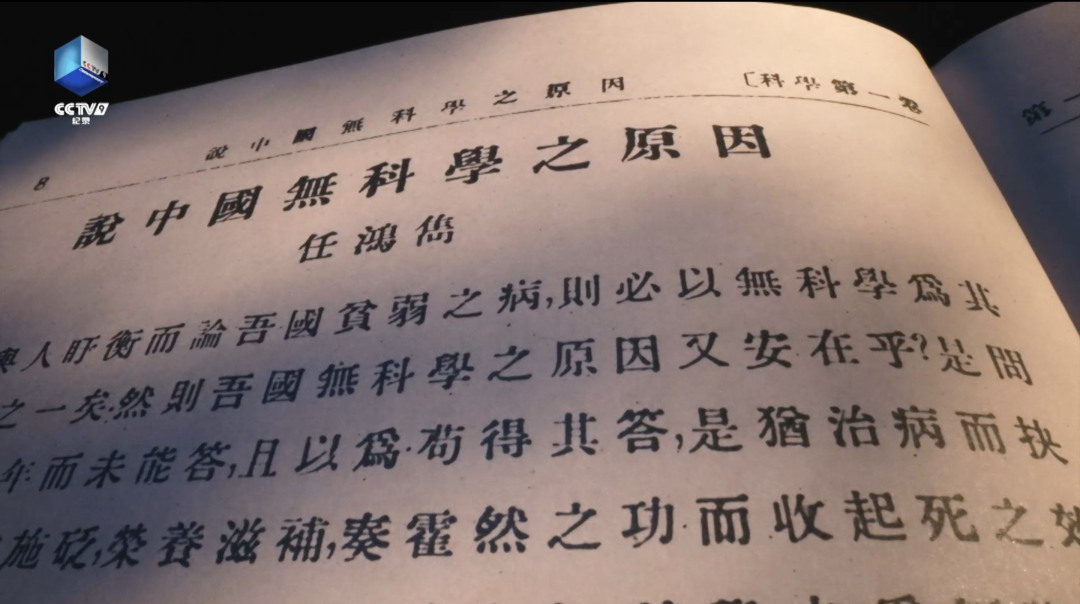 CCTV 9
纪录
8 說中國無科學之原因 [科學第一卷
說中國無科學之原因
任鴻雋
與人盱衡而論吾國貧弱之病,則必以無科學爲其
之一矣.然則吾國無科學之原因又安在乎?是問
年而未能答,且以爲.苟得其答,是猶治病而抉
施砭,榮養滋補,奏霍然之功.而收起死之效
第二